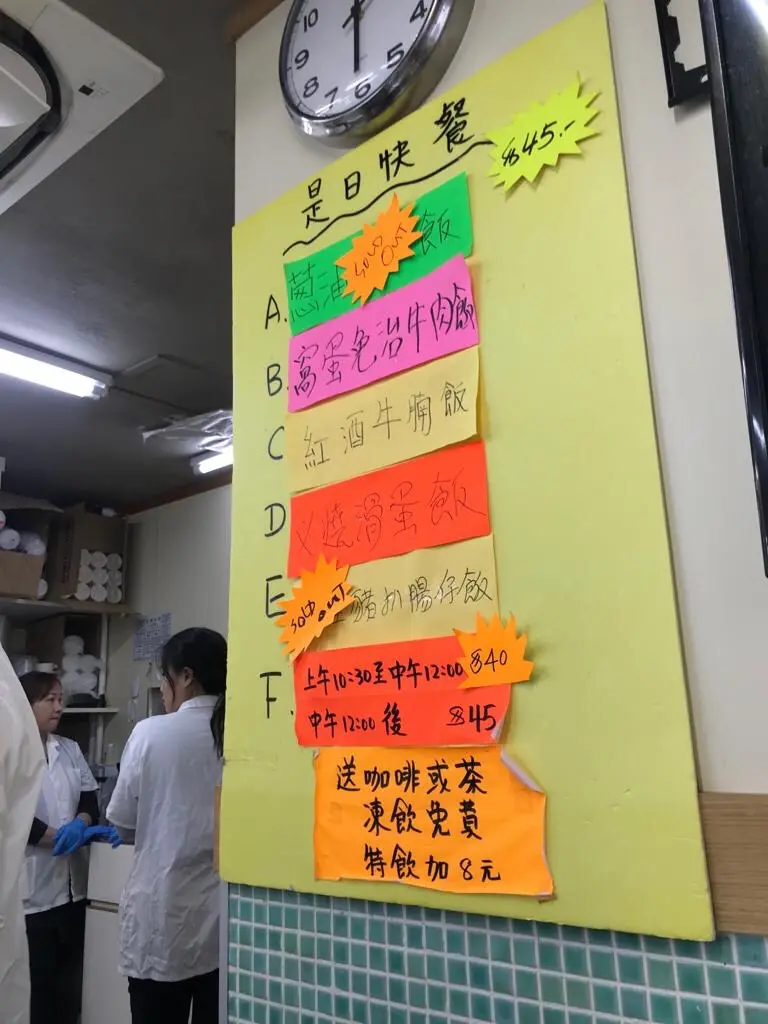 10 4
9 5
8 7 6
是日快餐 $45.-
A. 蔥油 飯
SOLD OUT
B. 窩蛋免治牛肉飯
C 紅酒牛腩飯
D 叉燒滑蛋飯
E 豬扒腸仔飯
SOLD OUT
F. 上午10:30至中午12:00 $40
中午12:00後 $45
送咖啡或茶
凍飲免費
特飲加8元